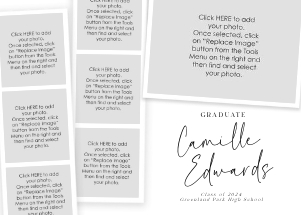 Click HERE to add
your photo.
Once selected, click
on "Replace Image"
button from the Tools
Menu on the right and
then find and select
your photo.
Click HERE to add
your photo.
Once selected, click
on "Replace Image"
button from the Tools
Menu on the right and
then find and select
your photo.
Click HERE to add
your photo.
Once selected, click
on "Replace Image"
button from the Tools
Menu on the right and
then find and select
your photo.
Click HERE to add
your photo.
Once selected, click
on "Replace Image"
button from the Tools
Menu on the right
and then find and
select your photo.
Once selected, click
on "Replace Image"
button from the Tools
Menu on the right and
then find and select
your photo.
Click HERE to add
your photo.
Once selected, click
on "Replace Image"
button from the Tools
Menu on the right and
then find and select
your photo.
Click HERE to add
your photo.
Once selected, click
on "Replace Image"
button from the Tools
Menu on the right and
then find and select
your photo.
Click HERE to add
your photo.
Once selected, click
on "Replace Image"
button from the Tools
Menu on the right and
then find and select
your photo.
GRADUATE
Camille
Edwards
Class of 2024
Greenland Park High School